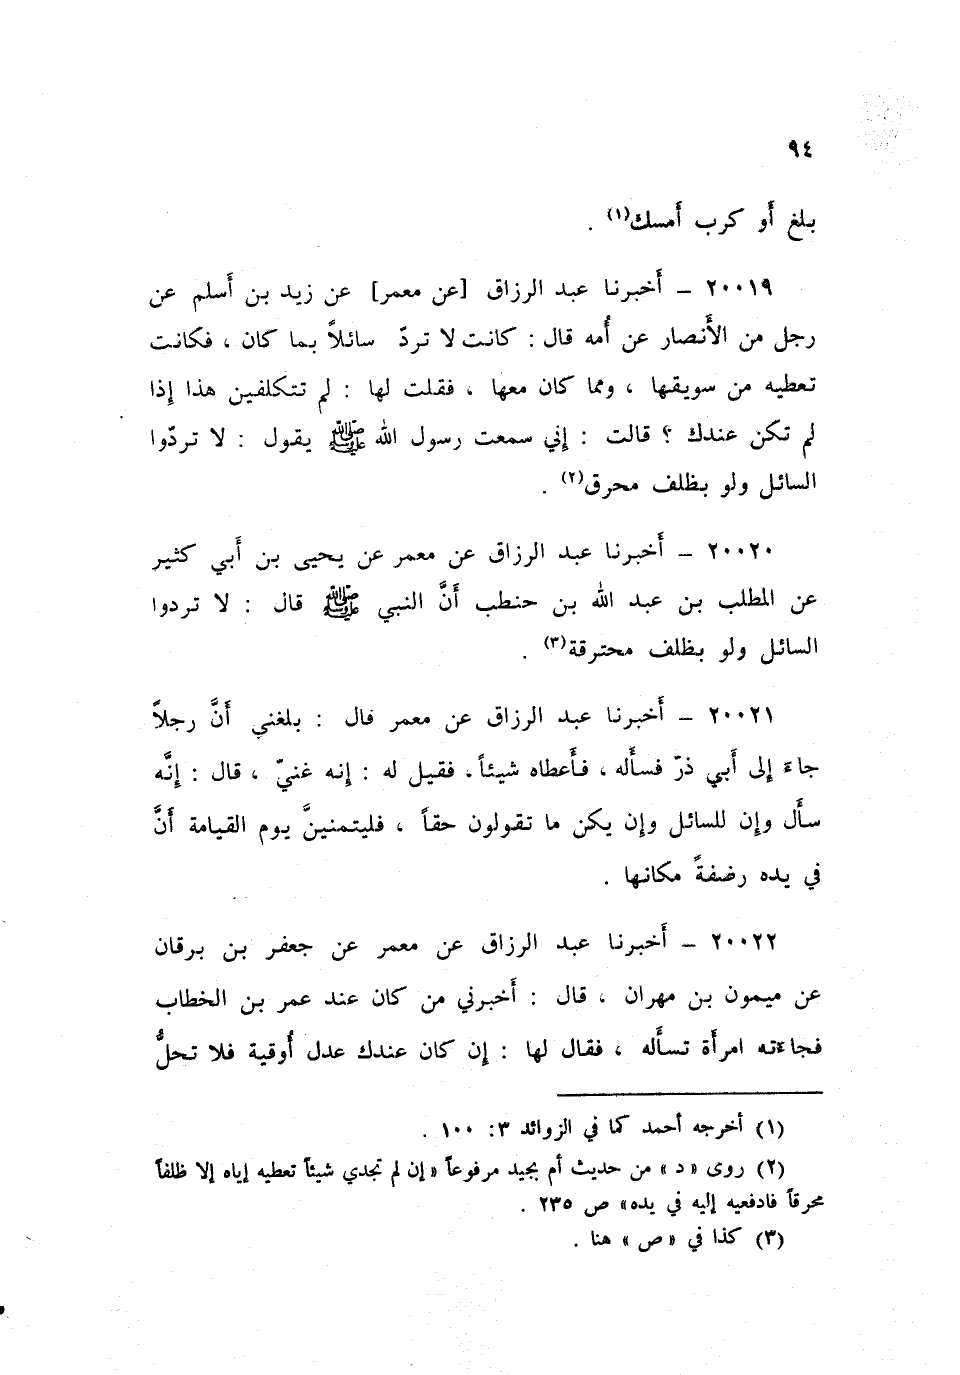 ٩٤
بلغ أَو كرب أَمسك(١) .
٢٠٠١٩ – أَخبرنا عبد الرزاق [عن معمر] عن زيد بن أَسلم عن
رجل من الأَنصار عن أُمه قال : كانت لا تردّ سائلاً بما كان ، فكانت
تعطيه من سويقها ، ومما كان معها ، فقلت لها : لم تتكلفين هذا إذا
لم تكن عندك ؟ قالت : إني سمعت رسول الله ﷺ يقول : لا تردّوا
السائل ولو بظلف محرق(٢) .
٢٠٠٢٠ – أَخبرنا عبد الرزاق عن معمر عن يحيى بن أَبي كثير
عن المطلب بن عبد الله بن حنطب أَنَّ النبي ﷺ قال : لا تردوا
السائل ولو بظلف محترقة(٣) .
٢٠٠٢١ – أَخبرنا عبد الرزاق عن معمر قال : بلغني أَنَّ رجلاً
جاءَ إلى أَبي ذرّ فسأَله ، فأَعطاه شيئاً ، فقيل له : إنه غنيّ ، قال : إنَّه
سأَل وإن للسائل وإن يكن ما تقولون حقاً ، فليتمنينَّ يوم القيامة أَنَّ
في يده رضفةً مكانها .
٢٠٠٢٢ – أَخبرنا عبد الرزاق عن معمر عن جعفر بن برقان
عن ميمون بن مهران ، قال : أَخبرني من كان عند عمر بن الخطاب
فجاءَته امرأَة تسأَله ، فقال لها : إن كان عندك عدل أُوقية فلا تحلُّ
(١) أخرجه أحمد كما في الزوائد ٣: ١٠٠ .
(٢) روى « د » من حديث أم بجيد مرفوعاً « إن لم تجدي شيئاً تعطيه إياه إلا ظلفاً
محرقاً فادفعيه إليه في يده » ص ٢٣٥ .
(٣) كذا في « ص » هنا .